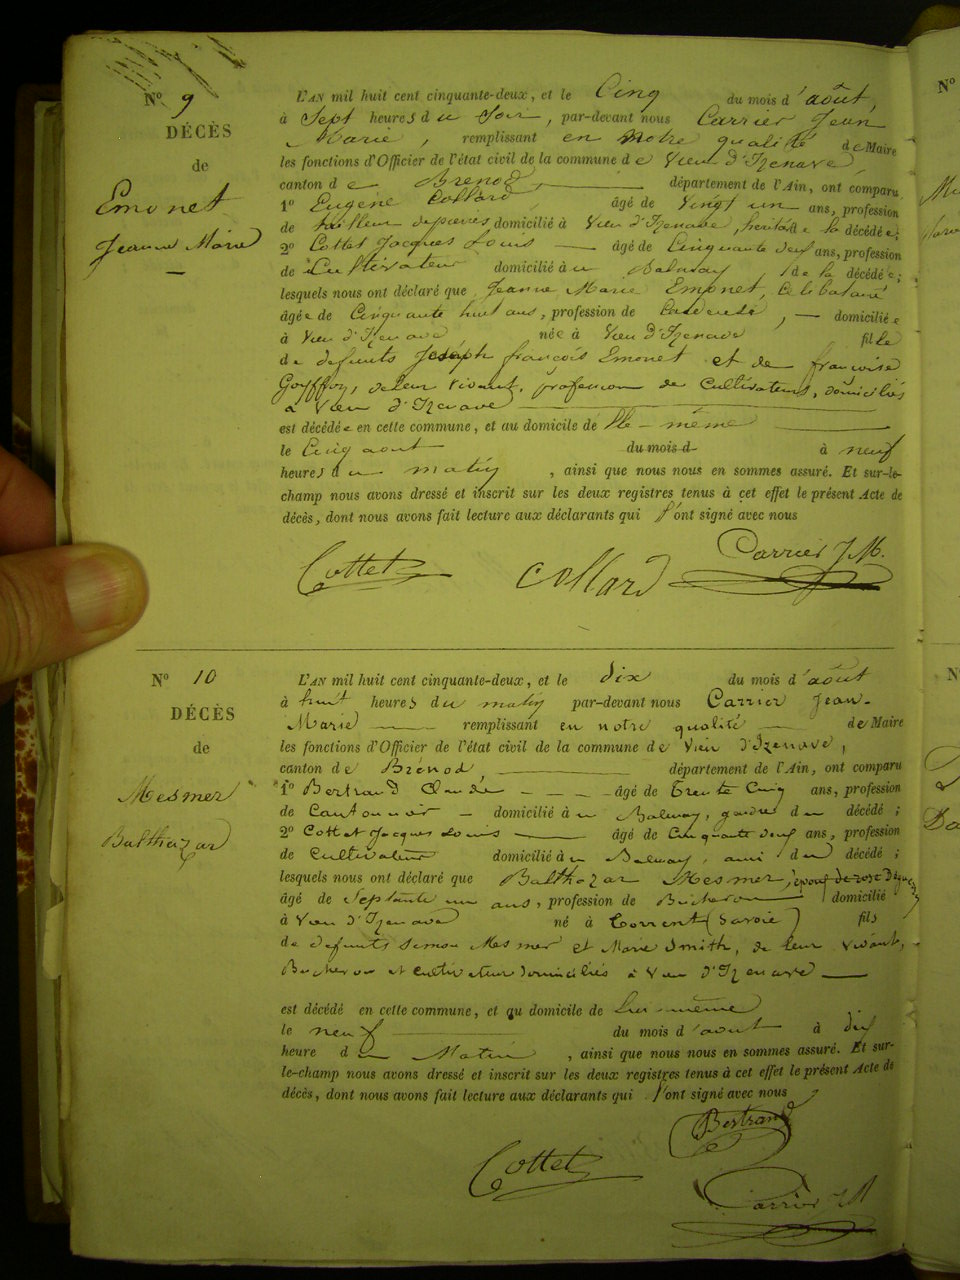 N° 9
DÉCÈS
de
Emonet
Jeanne Marie
L'AN mil huit cent cinquante-deux, et le Cinq du mois d'août,
à Sept heures du Soir, par-devant nous Carrier Jean
Marie, remplissant en notre qualité de Maire
les fonctions d'Officier de l'état civil de la commune de Vieu d'Izenave
canton de Brenod, département de l'Ain, ont comparu
1° Eugène Collard âgé de Vingt un ans, profession
de tailleur de pierres domicilié à Vieu d'Izenave, de la décédée;
2° Cottet Jacques Louis âgé de Cinquante deux ans, profession
de Cultivateur domicilié à Balmay, de la décédée;
lesquels nous ont déclaré que Jeanne Marie Emonet, Célibataire
âgée de Cinquante huit ans, profession de domiciliée
à Vieu d'Izenave née à Vieu d'Izenave fille
de defunts Joseph françois Emonet et de françoise
Gouffon, de leur vivant, profession de Cultivateurs, domiciliés
à Vieu d'Izenave
est décédée en cette commune, et au domicile de Elle-même
le Cinq aout du mois d à neuf
heures du matin, ainsi que nous nous en sommes assuré. Et sur-le-
champ nous avons dressé et inscrit sur les deux registres tenus à cet effet le présent Acte de
décès, dont nous avons fait lecture aux déclarants qui l'ont signé avec nous
Cottet Collard Carrier J M.
N° 10
DÉCÈS
de
Mesmer
Balthazar
L'AN mil huit cent cinquante-deux, et le dix du mois d'août
à huit heures du matin par-devant nous Carrier Jean-
Marie remplissant en notre qualité de Maire
les fonctions d'Officier de l'état civil de la commune de Vieu d'Izenave,
canton de Brénod, département de l'Ain, ont comparu
1° Bertrand Claude âgé de Trente Cinq ans, profession
de Cantonnier domicilié à Balmay, gendre du décédé;
2° Cottet Jacques Louis âgé de Cinquante deux ans, profession
de Cultivateur domicilié à Balmay, ami du décédé;
lesquels nous ont déclaré que Balthazar Mesmer, époux de rose
âgé de Septante un ans, profession de Bucheron domicilié
à Vieu d'Izenave né à Corrent (Savoie) fils
de defunts Simon Mesmer et Marie Smith, de leur vivant,
Bucheron et cultivateur domiciliés à Vieu d'Izenave
est décédé en cette commune, et au domicile de Lui-même
le neuf du mois d'aout à dix
heure du Matin, ainsi que nous nous en sommes assuré. Et sur-
le-champ nous avons dressé et inscrit sur les deux registres tenus à cet effet le présent Acte de
décès, dont nous avons fait lecture aux déclarants qui l'ont signé avec nous
Bertrand
Cottet
Carrier J M